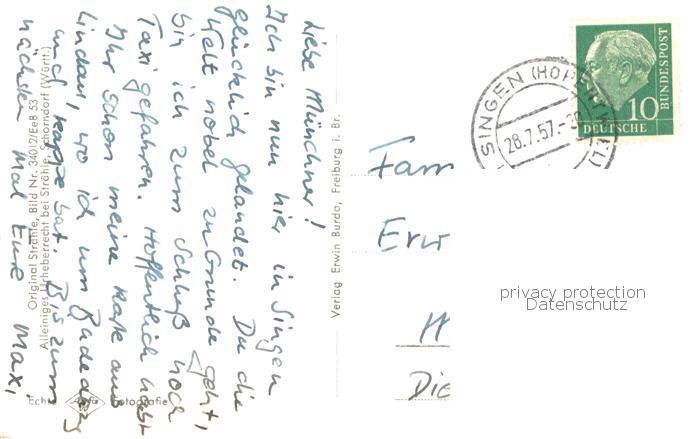 Liebe Münchner!
Ich bin nun hier in Singen
glücklich gelandet. Da die
Welt nobel zu Grunde geht,
bin ich zum Schluß noch
Taxi gefahren. Hoffentlich habt
Ihr schon meine Karte aus
Lindau, wo ich um Badeanzug
und Kappe bat. Bis zum
nächsten Mal Eure Maxi,
Original Strähle, Bild Nr. 34012/EeB 53
Alleiniges Urheberrecht bei Strähle, Schorndorf (Württ.)
Echte Agfa Fotografie
Verlag Erwin Burda, Freiburg i. Br.
SINGEN (HOHENTWIEL)
28.7.57.
10
DEUTSCHE
BUNDESPOST
Fam
Erw
M
Die
privacy protection
Datenschutz